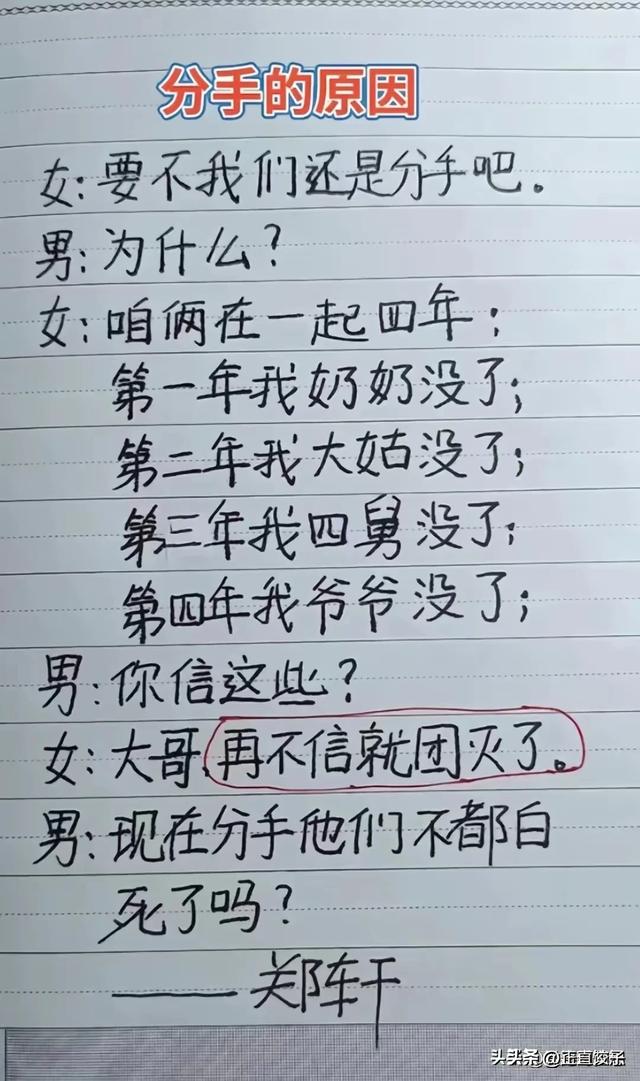 分手的原因
女:要不我们还是分手吧。
男:为什么?
女:咱俩在一起四年;
第一年我奶奶没了;
第二年我大姑没了;
第三年我四舅没了;
第四年我爷爷没了;
男:你信这些?
女:大哥,再不信就团灭了。
男:现在分手他们不都白
死了吗?
——郑阵干
头条@正直饺子